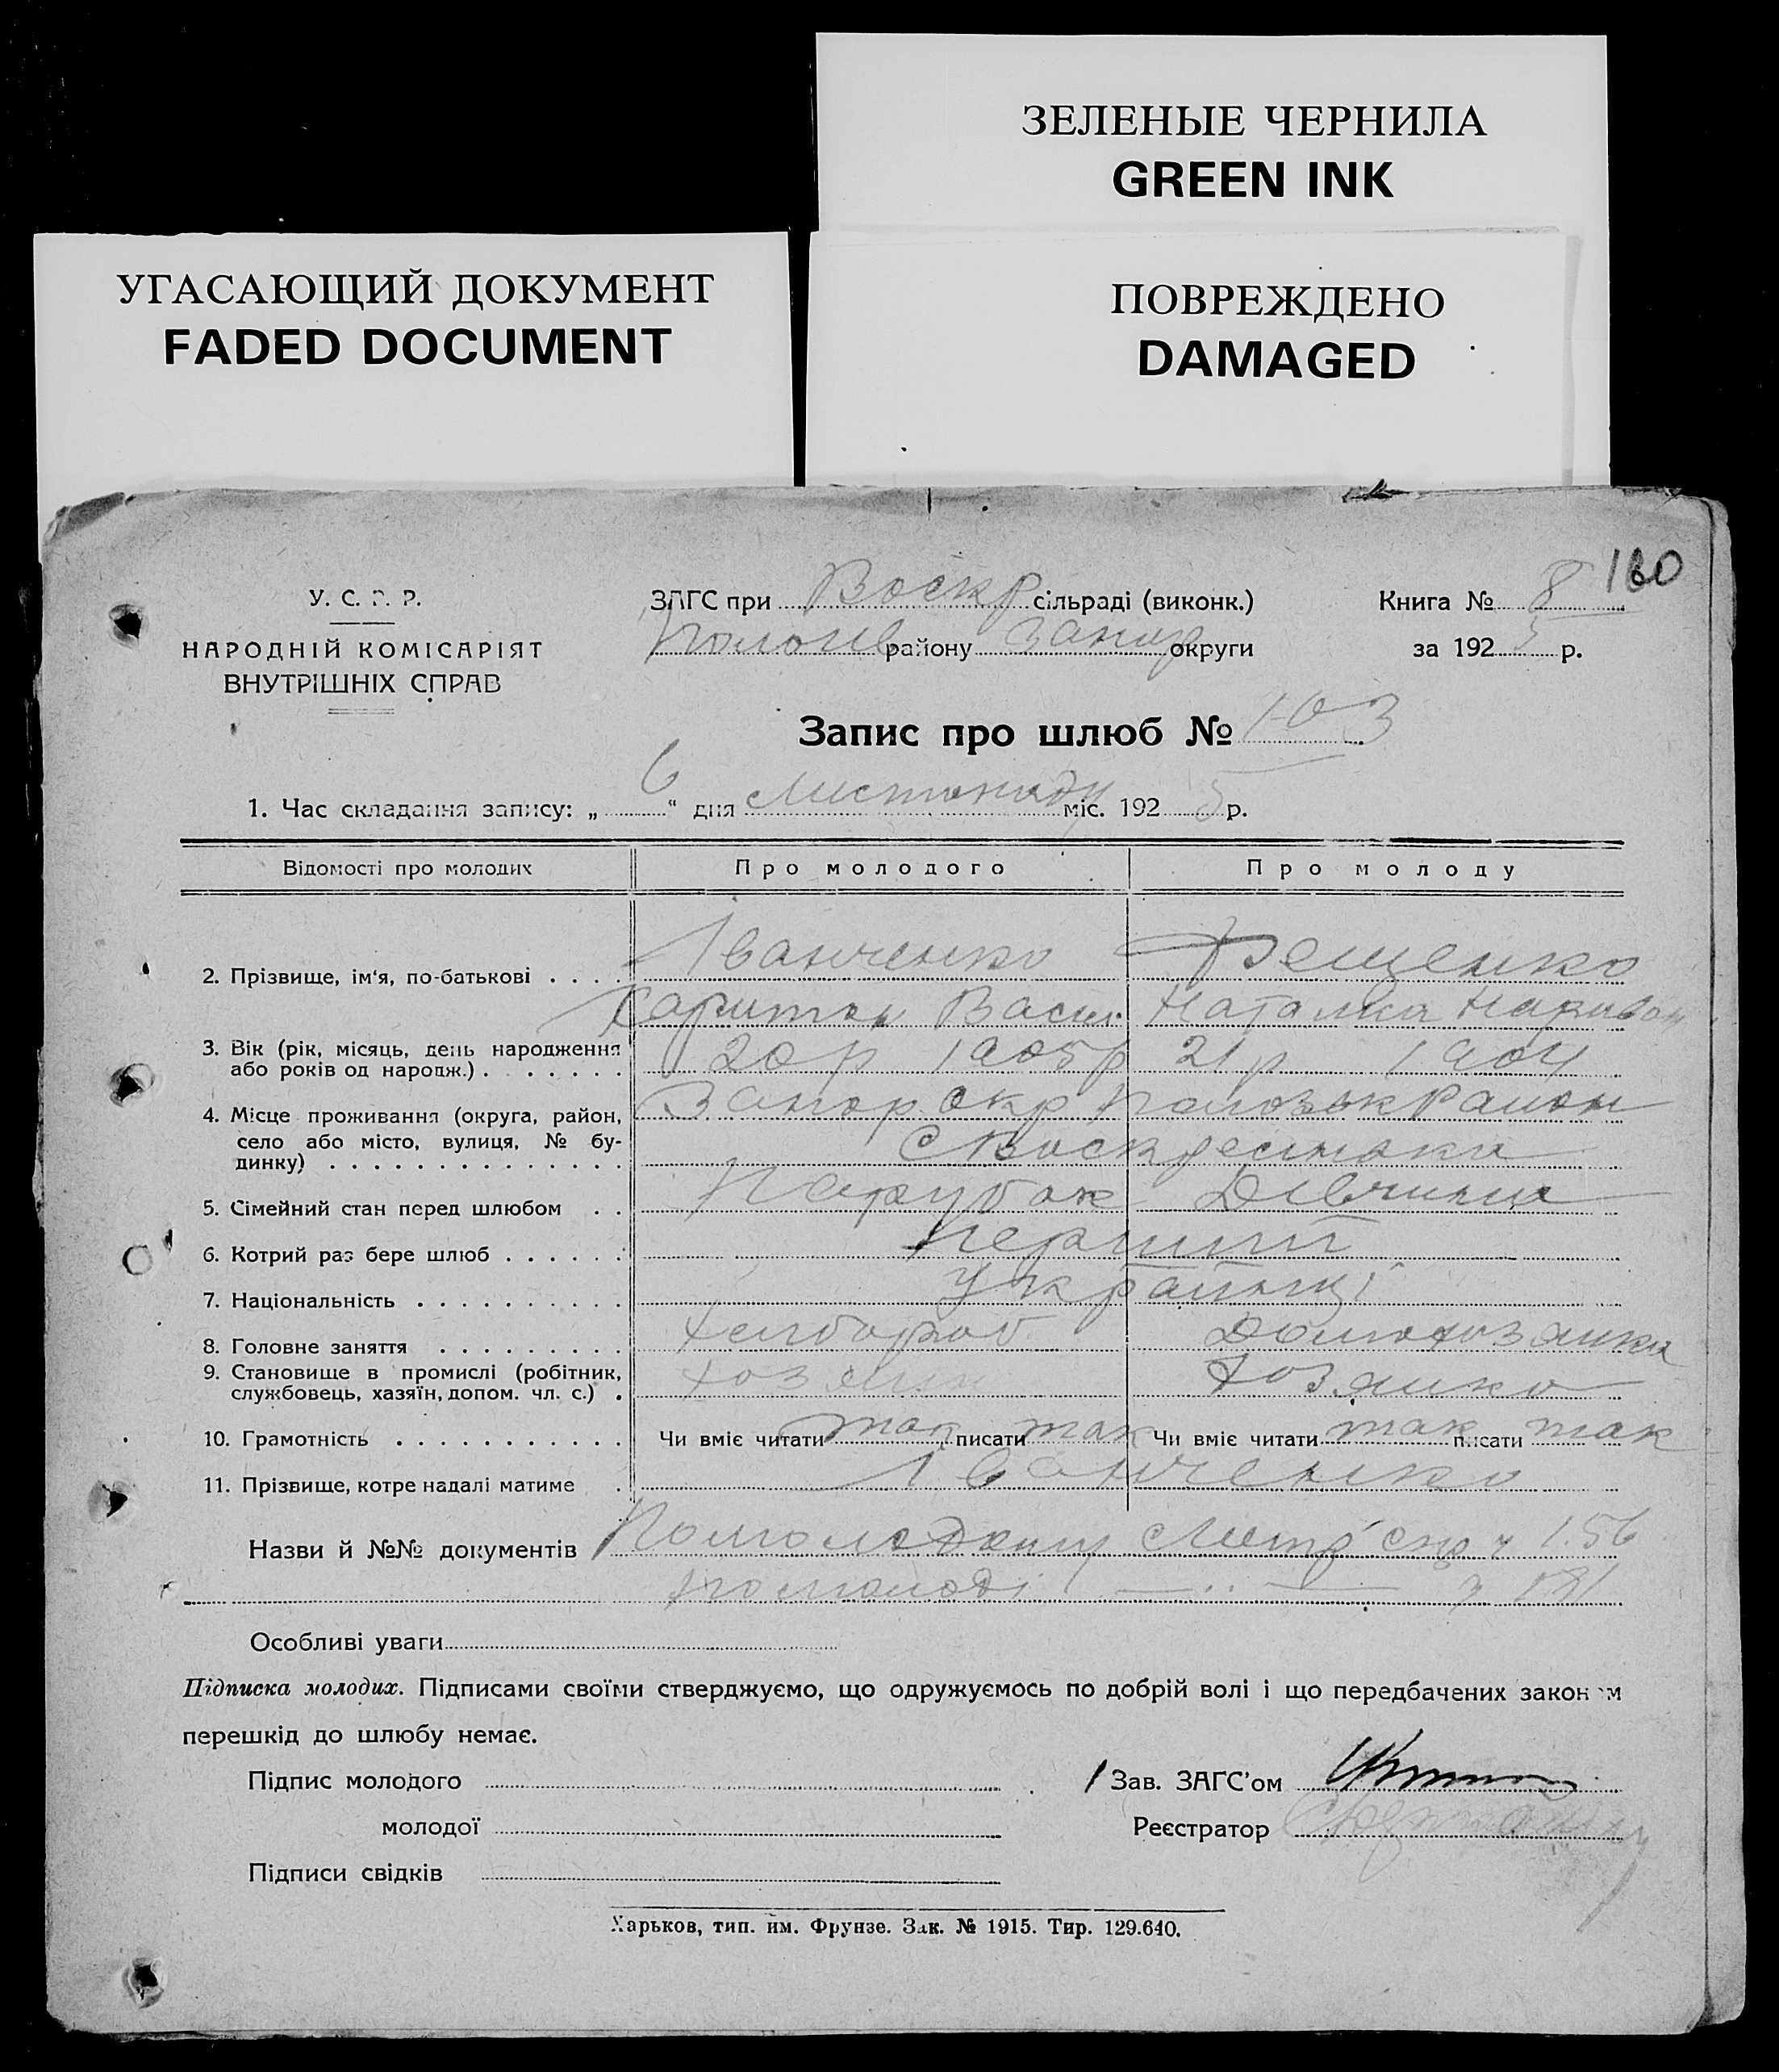 ЗЕЛЕНЫЕ ЧЕРНИЛА
GREEN INK
УГАСАЮЩИЙ ДОКУМЕНТ
FADED DOCUMENT
ПОВРЕЖДЕНО
DAMAGED
180
У. С. Р. Р.
НАРОДНІЙ КОМІСАРІЯТ
ВНУТРІШНІХ СПРАВ
ЗАГС при Воскр сільраді (виконк.)
Пологів району Запор округи
Книга № 8
за 1925 р.
Запис про шлюб № 103
1. Час складання запису: „6“ дня Листопаду міс. 1925 р.
Відомості про молодих Про молодого Про молоду
2. Прізвище, ім‘я, по-батькові Іванченко
Харитон Васил Наталка
3. Вік (рік, місяць, день народження 20 р 1905 р 21 р 1904
або років од народж.)
4. Місце проживання (округа, район, Запор Окр Район
село або місто, вулиця, № бу-
динку) С Воскресенка
5. Сімейний стан перед шлюбом Парубок Дівчина
6. Котрий раз бере шлюб Перший
7. Національність Українці
8. Головне заняття Хлібороб Домохозяйка
9. Становище в промислі (робітник, Хозяин Хозяйка
службовець, хазяїн, допом. чл. с.)
10. Грамотність Чи вміє читати так писати так Чи вміє читати так писати так
11. Прізвище, котре надалі матиме Іванченко
Назви й №№ документів По молодому Метр 156
по молоді — ·· — 181
Особливі уваги
Підписка молодих. Підписами своїми стверджуємо, що одружуємось по добрій волі і що передбачених законом
перешкід до шлюбу немає.
Підпис молодого
Зав. ЗАГС’ом
молодої
Реєстратор
Підписи свідків
Харьков, тип. им. Фрунзе. Зак. № 1915. Тир. 129.640.